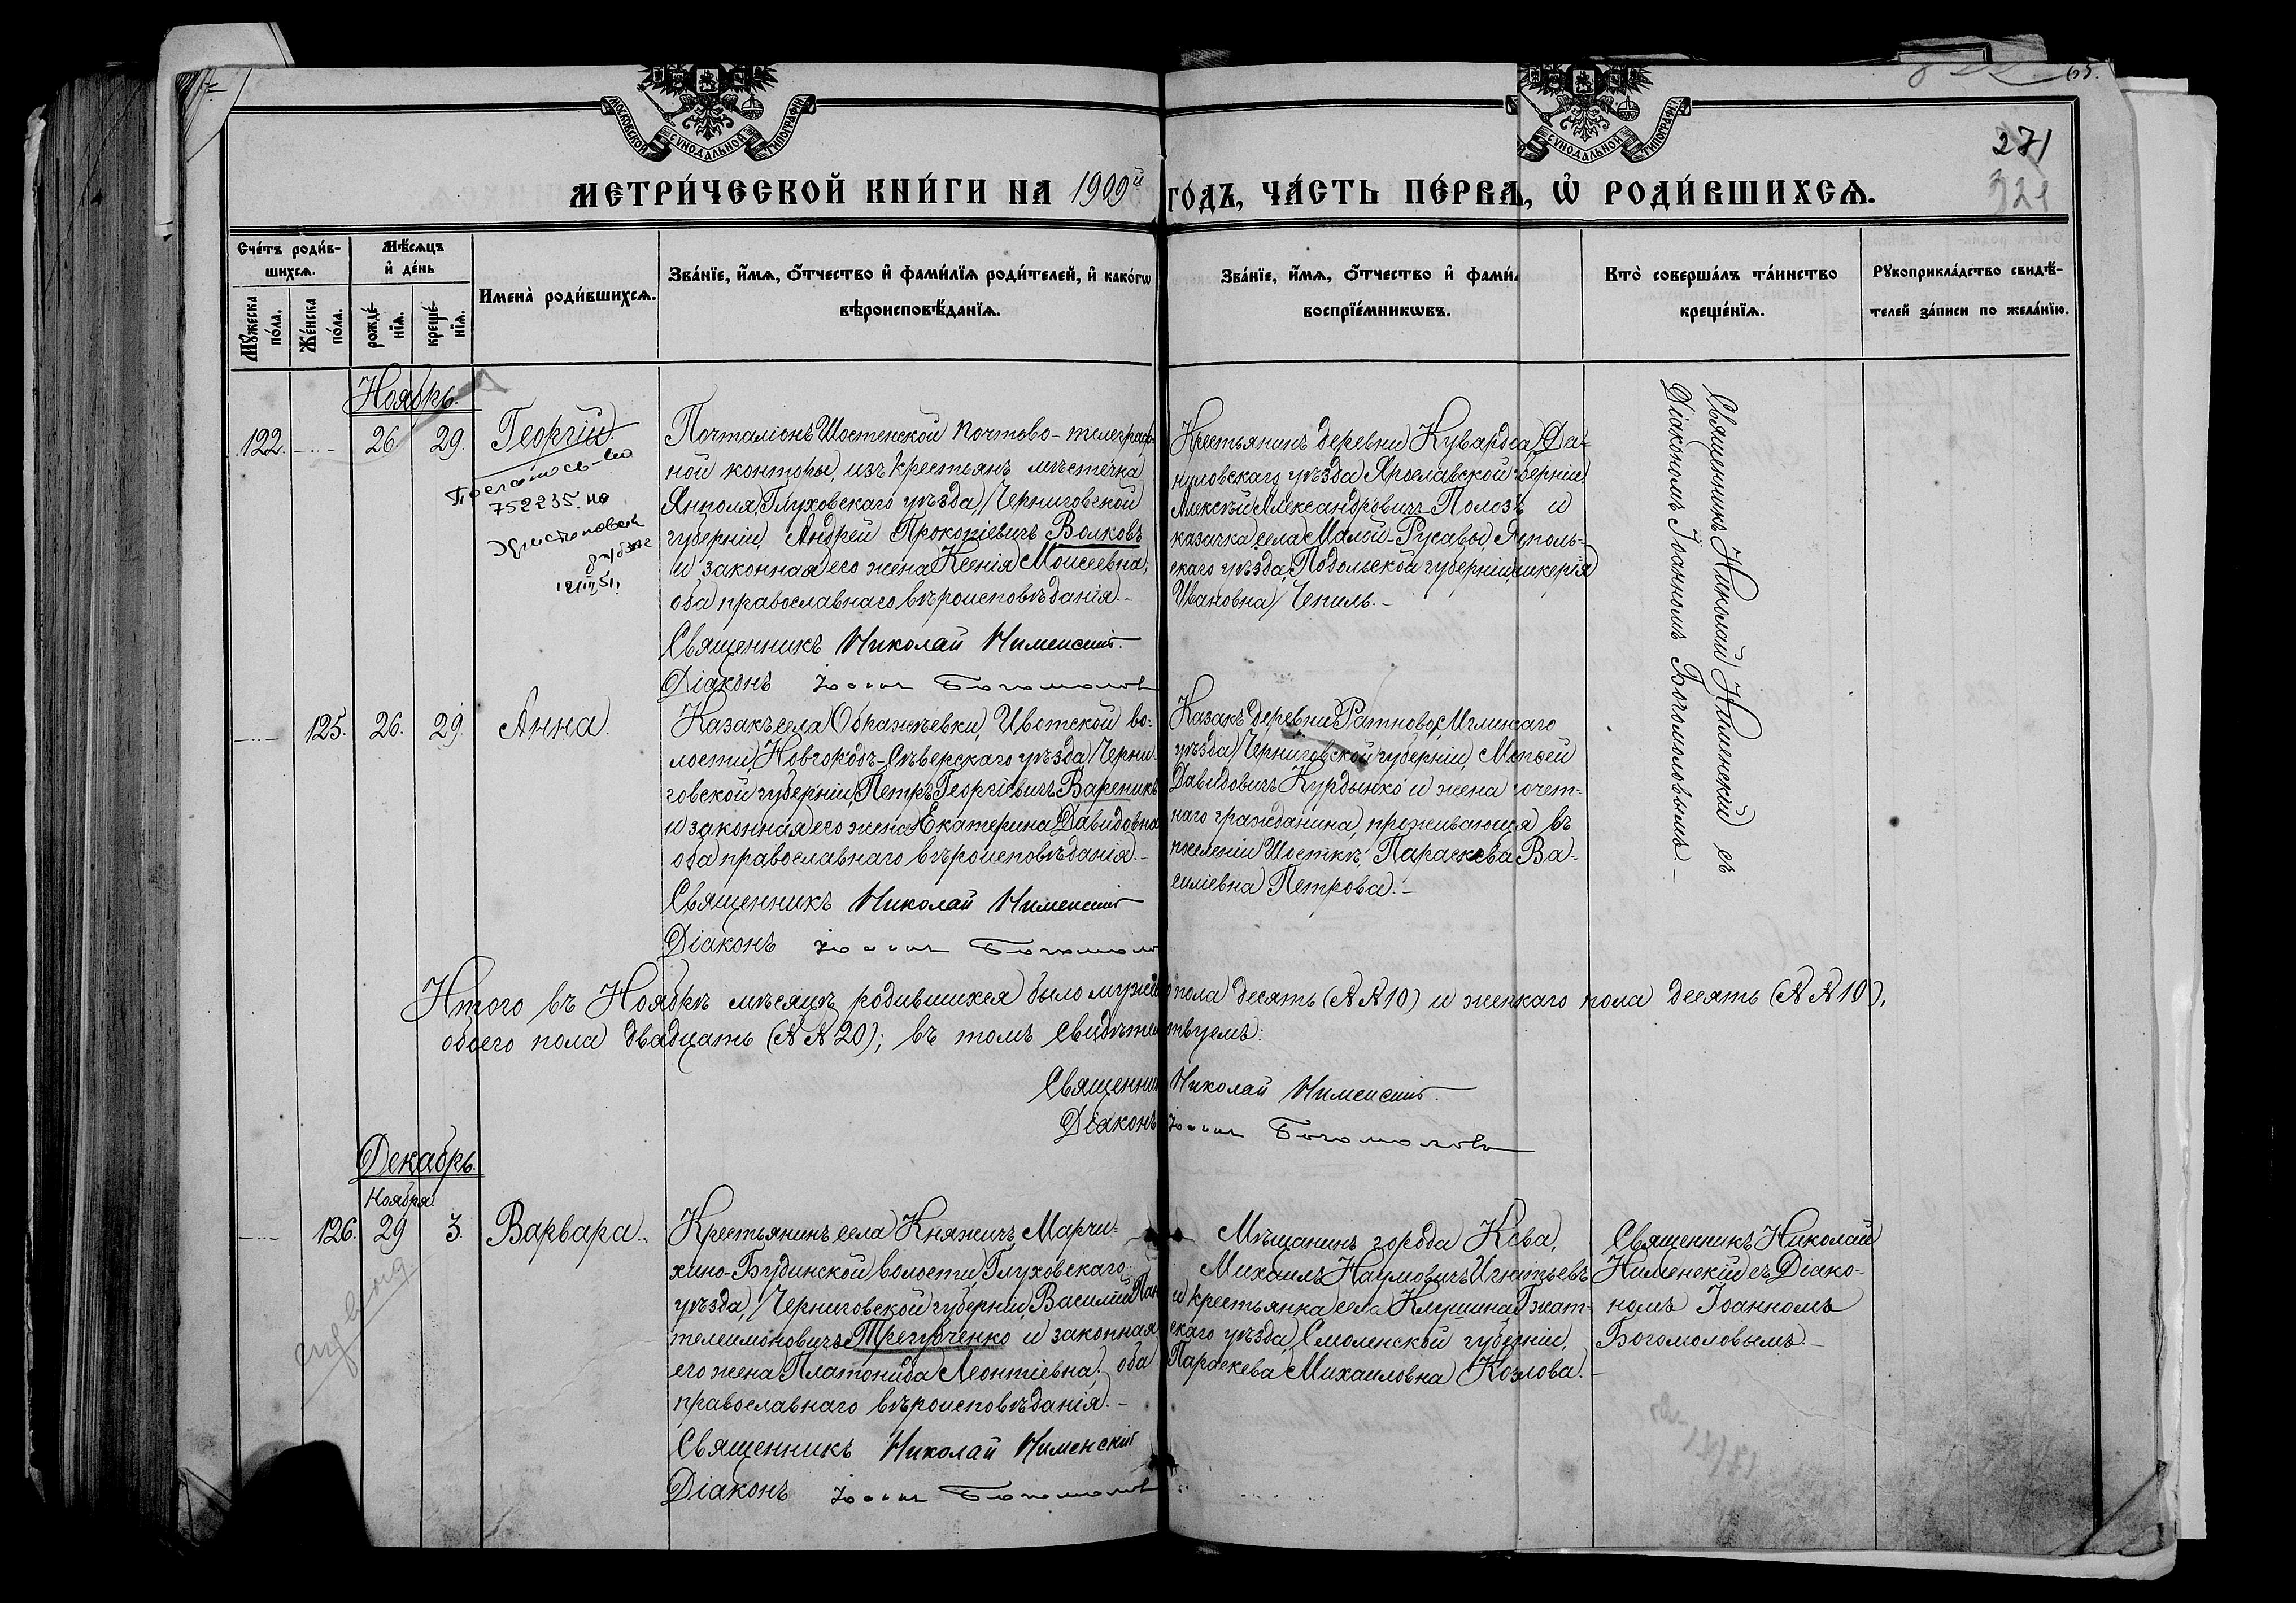 МОСКОВСКОЙ СѴНОДАЛЬНОЙ ТИПОГРАФІИ
СѴНОДАЛЬНОЙ ТИПОГРАФІИ
65.
271
321
МЕТРИ́ЧЕСКОЙ КНИ́ГИ НА 1909й ГО́ДЪ, ЧА́СТЬ ПЕ́РВАѦ, Ѡ҆ РОДИ́ВШИХСѦ.
Сче́тъ роди́в-
шихсѧ.
Мꙋ́жеска по́ла.
Же́нска по́ла.
Мѣ́сѧцъ
и҆ де́нь
рожде́-
нїѧ.
креще́-
нїѧ.
Имена̀ роди́вшихсѧ.
Зва́нїе, и҆́мѧ, ѻ҆́тчество и҆ фами́лїѧ роди́телей, и҆ како́гѡ
вѣроисповѣ́данїѧ.
Зва́нїе, и҆́мѧ, ѻ҆́тчество и҆ фами́
воспрїе́мникѡвъ.
Кто̀ соверша́лъ та́инство
креще́нїѧ.
Рꙋкоприкла́дство свидѣ́-
телей за́писи по жела́нїю.
Ноябрь.
122.
26
29.
Георгій.
752235. на
Почталіонъ Шостенской почтово-телеграф-
ной конторы, изъ крестьянъ мѣстечка
Янполя, Глуховскаго уѣзда, Черниговской
губерніи, Андрей Прокопіевичъ Волковъ
и законная его жена Ксенія Моисеевна;
оба православнаго вѣроисповѣданія.-
Священникъ Николай Нименскій.
Діаконъ Іоаннъ Богомолов
Крестьянинъ деревни Да-
ниловскаго уѣзда Ярославской губерніи
Алексѣй Александровичъ Полозъ и
казачка села Малой-Русавы, Ямполь-
скаго уѣзда, Подольской губерніи,
Ивановна Чепиль.-
Священникъ Николай Нименскій съ
Діакономъ Іоанномъ Богомоловымъ.-
125.
26.
29.
Анна.
Казакъ села Ображѣевки, Ивотской во-
лости, Новгородъ-Сѣверскаго уѣзда, Черни-
говской губерніи, Петръ Георгіевичъ Вареникъ
и законная его жена Екатерина Давидовна
оба православнаго вѣроисповѣданія.-
Священникъ Николай Нименскій
Діаконъ Іоаннъ Богомоло
Казакъ деревни Мглинскаго
уѣзда, Черниговской губерніи,
Давидовичъ и жена почет-
наго гражданина, проживающая въ
поселеніи Шосткѣ, Параскева Ва-
силіевна Петрова.-
Итого въ Ноябрѣ мѣсяцѣ родившихся было мужска пола десять (№№10) и женскаго пола десять (№№10),
обоего пола двадцать (№№20); въ томъ свидѣтельствуемъ:
Священникъ Николай Нименскій.
Діаконъ Іоаннъ Богомоловъ
Декабрь
126.
Ноября
29
3.
Варвара.
Крестьянинъ села Княжичъ, Марчи-
хино-Будинской волости, Глуховскаго
уѣзда, Черниговской губерніи, Василій Пан
телеимоновичъ Трегубченко и законная
его жена Платонида Леонтіевна; оба
православнаго вѣроисповѣданія.-
Священникъ Николай Нименскій
Діаконъ Іоаннъ Богомолов
Мѣщанинъ города Кіева,
Михаилъ Наумовичъ Игнатьевъ
и крестьянка села Клушина, Гжат-
скаго уѣзда, Смоленской губерніи,
Параскева Михаиловна Козлова.-
Священникъ Николай
Нименскій съ Діако-
номъ Іоанномъ
Богомоловымъ.-